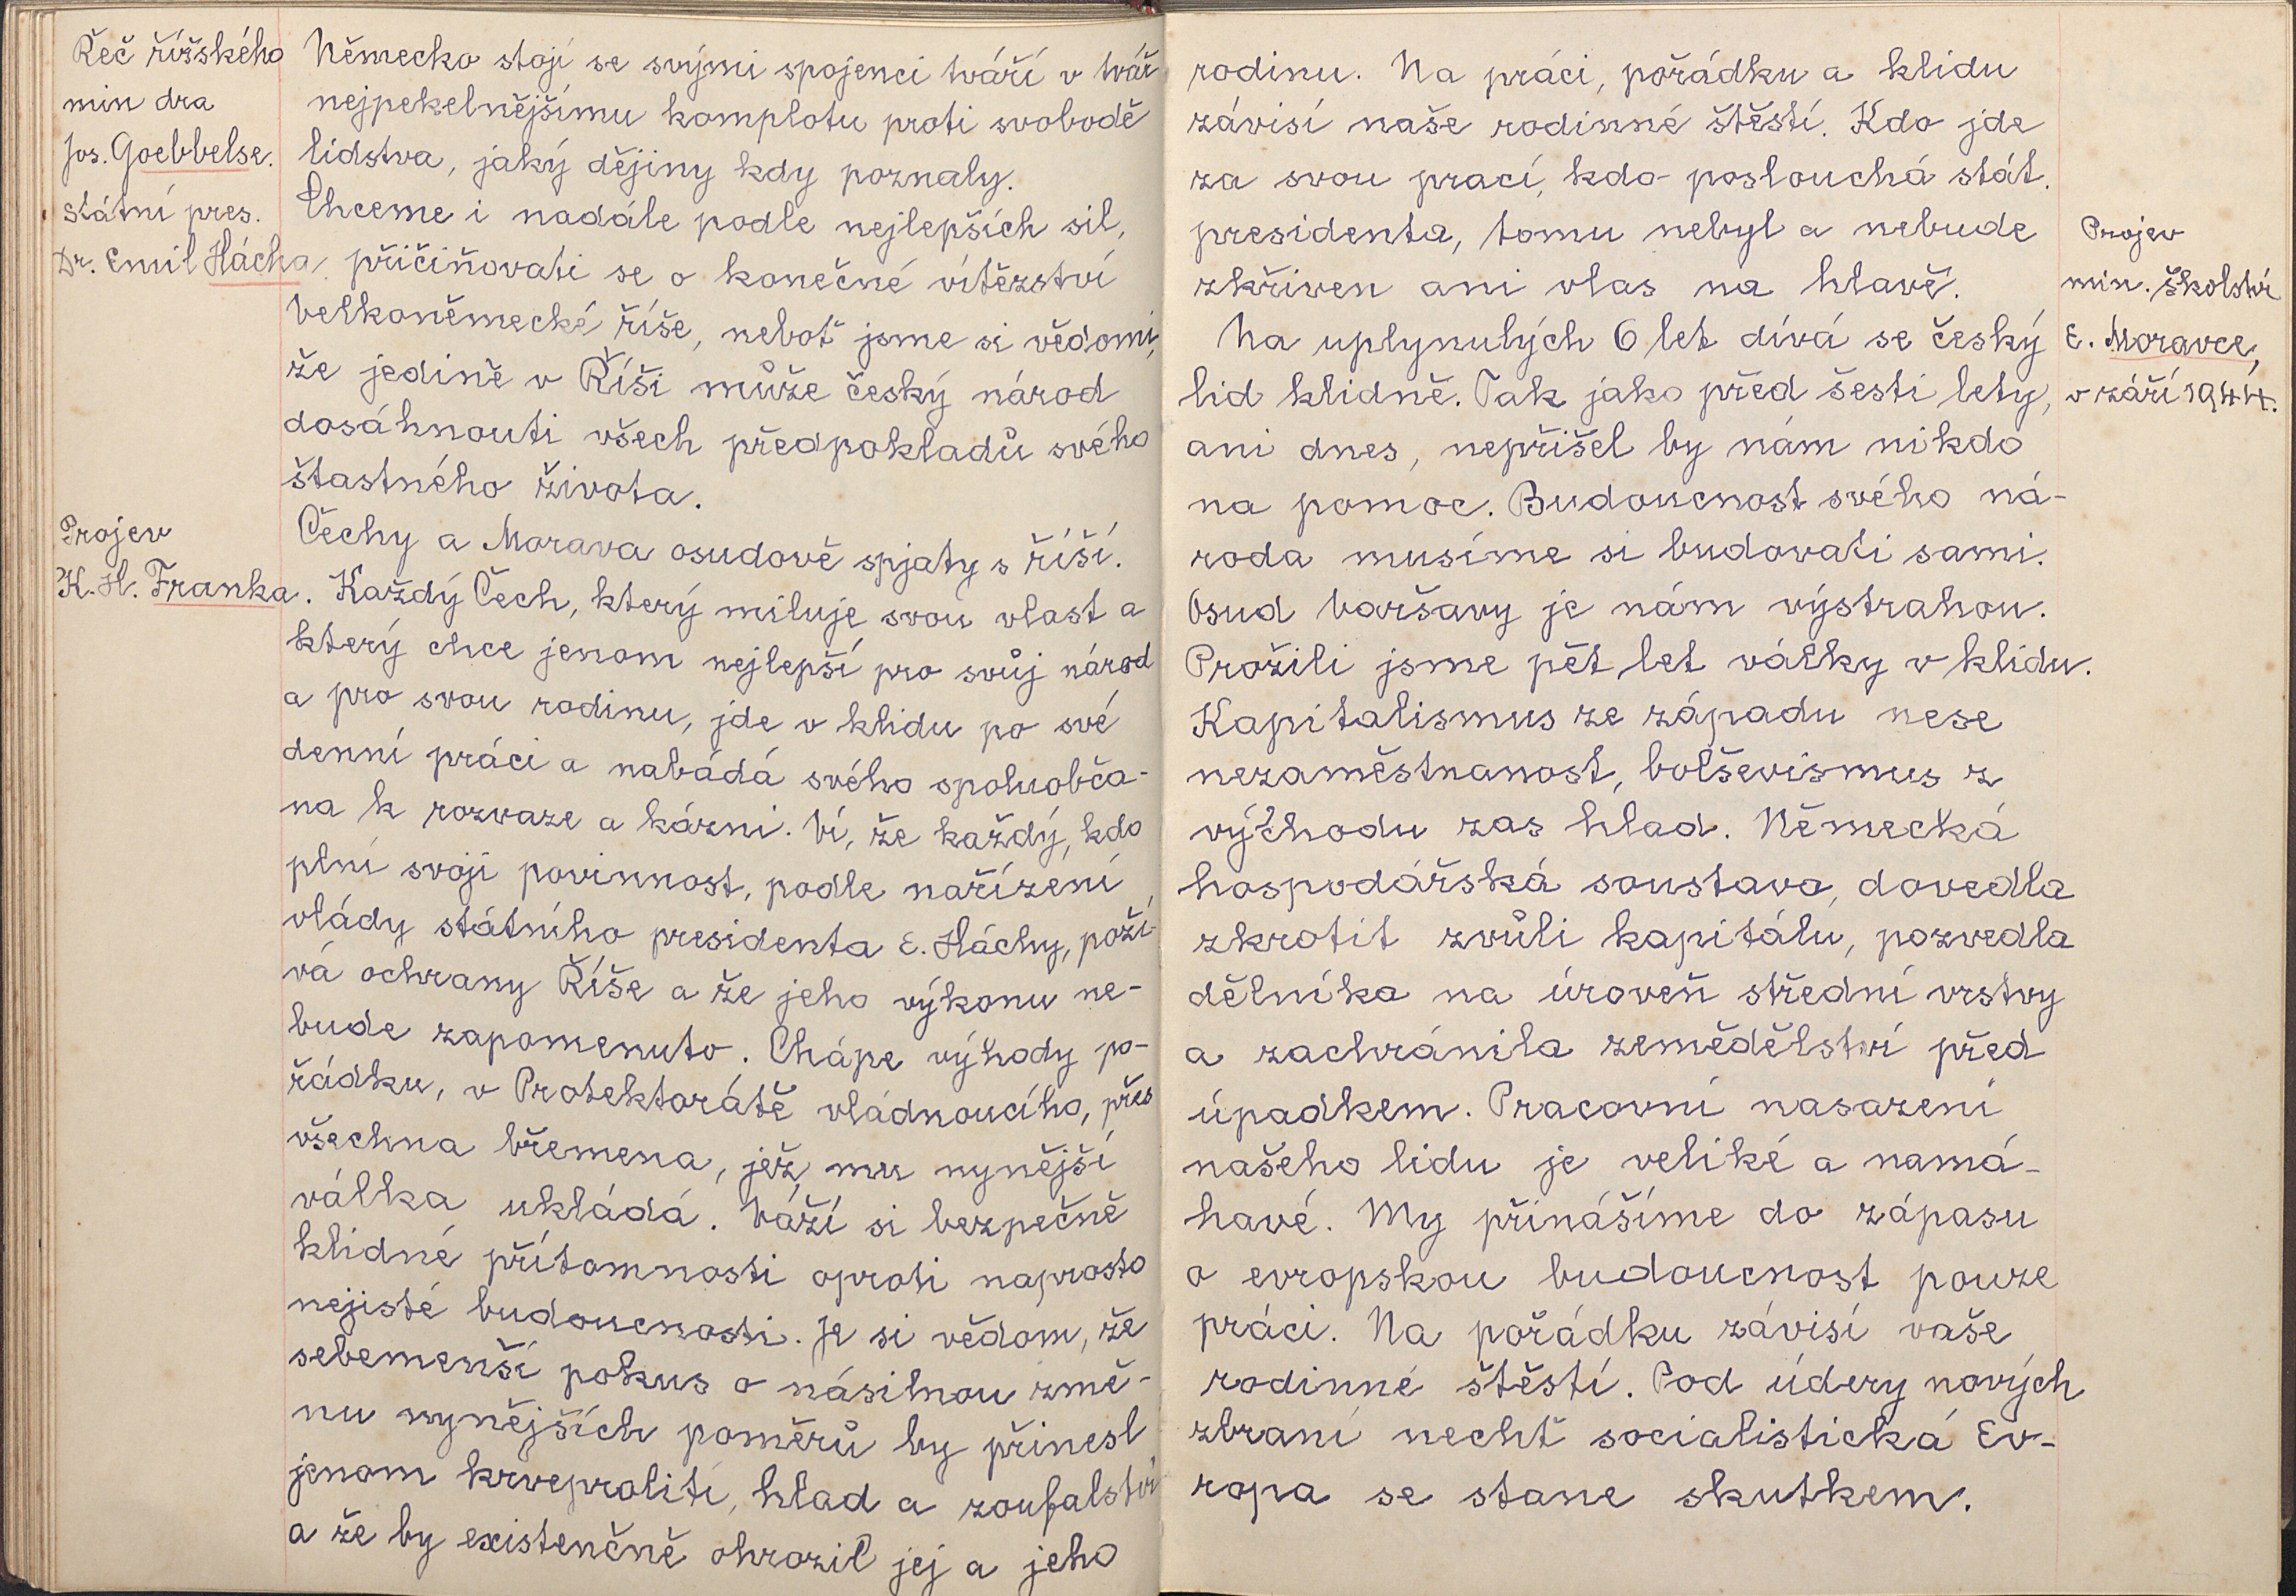 Řeč říšského
min dra
Jos. Goebbelse.
státní pres.
Dr. Emil Hácha
Německo stojí se svými spojenci tváří v tvář
nejpekelnějšímu komplotu proti svobodě
lidstva, jaký dějiny kdy poznaly.
Chceme i nadále podle nejlepších sil,
přičiňovati se o konečné vítězství
Velkoněmecké říše, neboť jsme si vědomi,
že jedině v Říši může český národ
dosáhnouti všech předpokladů svého
štastného života.
Projev
K. H. Franka.
Čechy a Morava osudově spjaty s říší.
Každý Čech, který miluje svou vlast a
který chce jenom nejlepší pro svůj národ
a pro svou rodinu, jde v klidu po své
denní práci a nabádá svého spoluobča-
na k rozvaze a kázni. Ví, že každý, kdo
plní svoji povinnost, podle nařízení
vlády státního presidenta E. Háchy, poží-
vá ochrany Říše a že jeho výkonu ne-
bude zapomenuto. Chápe výhody po-
řádku, v Protektorátě vládnoucího, přes
všechna břemena, jež mu nynější
válka ukládá. Váží si bezpečně
klidné přítomnosti oproti naprosto
nejisté budoucnosti. Je si vědom, že
sebemenší pokus o násilnou změ-
nu nynějších poměrů by přinesl
jenom krveprolití, hlad a zoufalství
a že by existenčně ohrozil jej a jeho
rodinu. Na práci, pořádku a klidu
závisí naše rodinné štěstí. Kdo jde
za svou prací, kdo poslouchá stát.
presidenta, tomu nebyl a nebude
zkřiven ani vlas na hlavě.
Projev
min. školství
E. Moravce,
v září 1944.
Na uplynulých 6 let dívá se český
lid klidně. Tak jako před šesti lety,
ani dnes, nepřišel by nám nikdo
na pomoc. Budoucnost svého ná-
roda musíme si budovati sami.
Osud Varšavy je nám výstrahou.
Prožili jsme pět let války v klidu.
Kapitalismus ze západu nese
nezaměstnanost, bolševismus z
východu zas hlad. Německá
hospodářská soustava, dovedla
zkrotit zvůli kapitálu, pozvedla
dělníka na úroveň střední vrstvy
a zachránila zemědělství před
úpadkem. Pracovní nasazení
našeho lidu je veliké a namá-
havé. My přinášíme do zápasu
o evropskou budoucnost pouze
práci. Na pořádku závisí vaše
rodinné štěstí. Pod údery nových
zbraní nechť socialistická Ev-
ropa se stane skutkem.